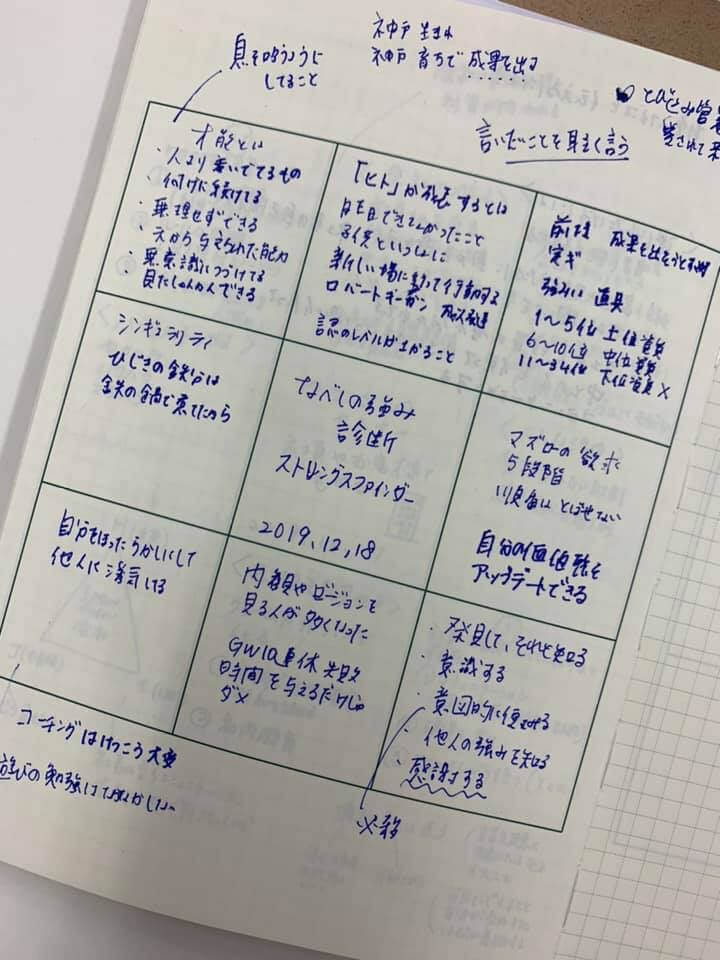 神戸生まれ
神戸育ちで成果を出す
息を吸うように
してること
とびこみ営
言いたいことを早く言う
才能とは
・人より着いでてるもの
何気に続けてる
・無理せずできる
・天から与えられた能力
・無意識につづけてる
・見たしゅんかんできる
「ヒト」が成長するとは
昨日できてなかったこと
子供といっしょに
新しい場に立って行動する
ロバートキーガン
認のレベルが上がること
前提 成果を出そうとす
実ず
強みは 道具
1〜5位 上位資質
6〜10位 中位資質
11〜34位 下位資質×
シンギュラリティ
ひじきの鉄分は
鉄の鍋で煮てたから
なべしの強み
診断
ストレングスファインダー
2019.12.18
マズローの欲求
5段階
順番はとばせない
自分の価値観を
アップデートできる
自分をほったらかしにして
他人に
内観やビジョンを
見る人が多くなった
GW10連休 失敗
時間を与えるだけじゃ
ダメ
・発見して、それを知る
・意識する
・意図的に使ってみる
・他人の強みを知る
・感謝する
コーチングはけっこう大変
遊びの勉強は